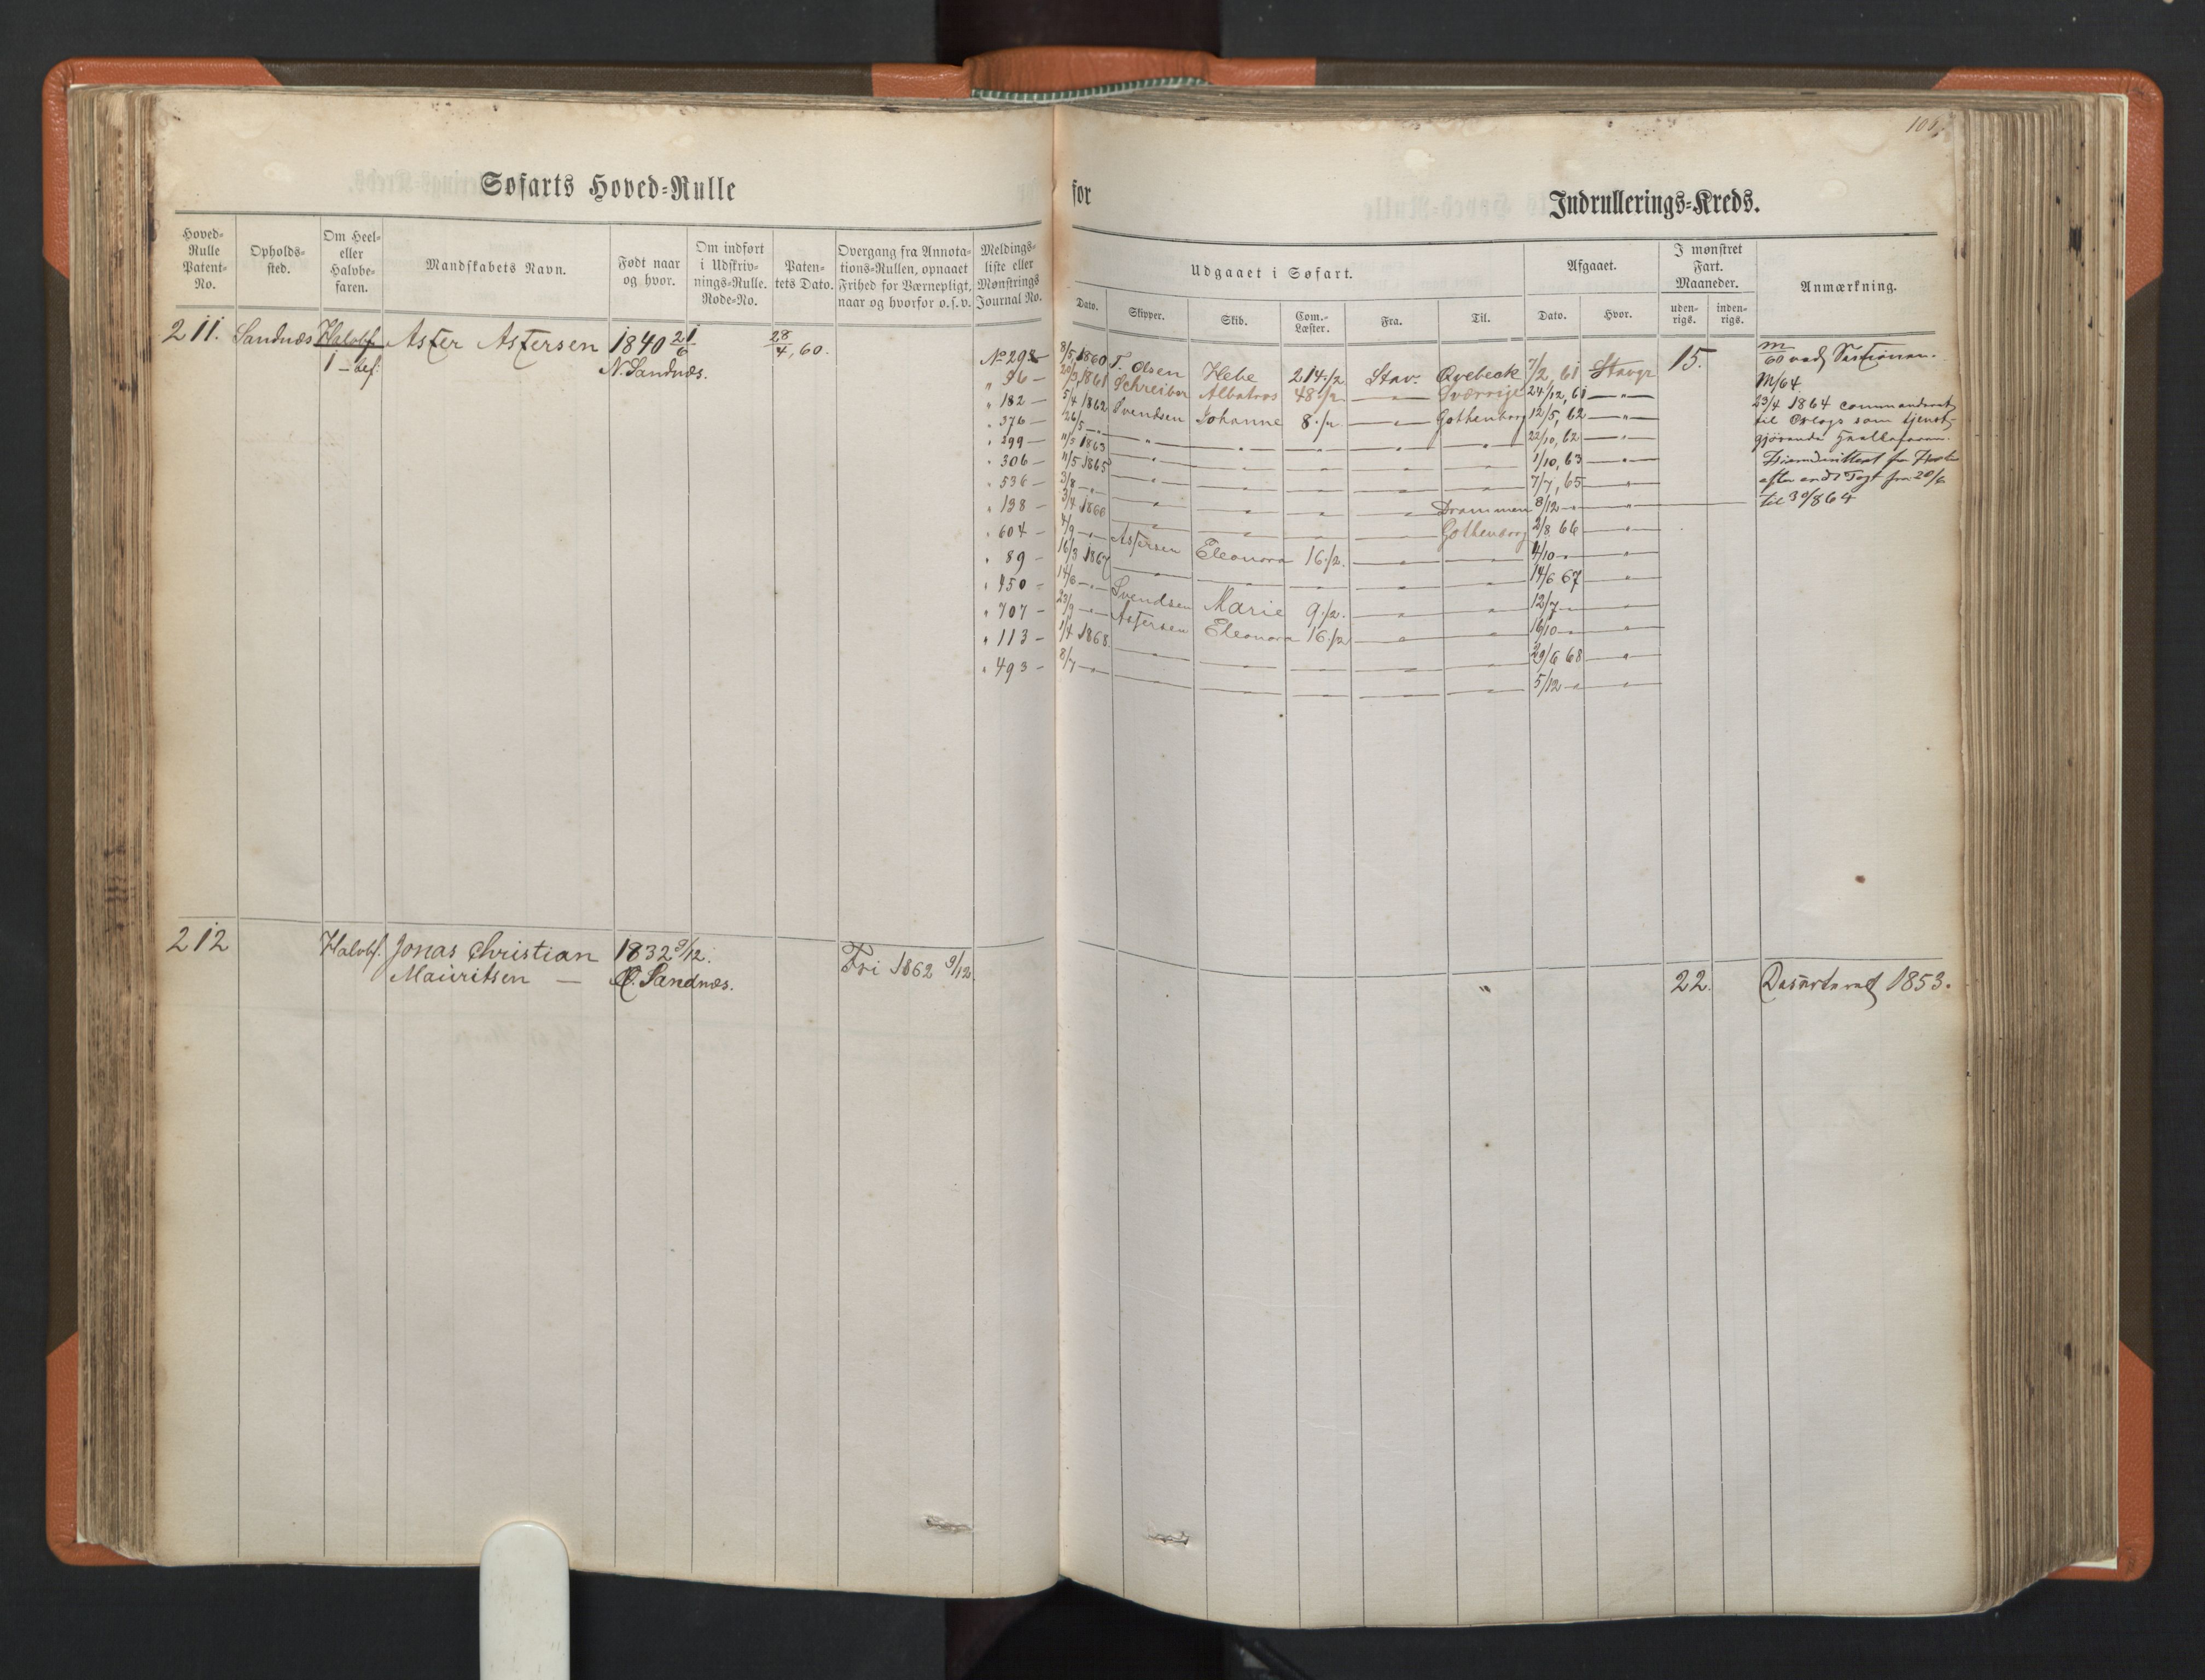 Søfarts Hoved-Rulle
Hoved-Rulle Patent-No.
Opholds-sted.
Om Heel- eller Halvbe-faren.
Mandskabets Navn.
Født naar og hvor.
Om indført i Udskriv-nings-Rulle. Rode-No.
Paten-tets Dato.
Overgang fra Annota-tions-Rullen, opnaaet Frihed for Værnepligt, naar og hvorfor o.s.v.
Meldings-liste eller Mønstrings Journal No.
211. Sandnæs Halvbf. Asser Assersen 1840 21/6 28/4, 60.
1 - bef: N. Sandnæs.
No 298 -
" 96 -
" 182 -
" 376 -
" 299 -
" 306 -
" 536 -
" 138 -
" 604 -
" 89 -
" 450 -
" 707 -
" 113 -
" 493 -
212 Halvbf. Jonas Christian 1832 9/12. Fri 1862 9/12.
Mauritsen — Sandnæs.
for
Indrullerings-Kreds.
Udgaaet i Søfart.
Afgaaet.
I mønstret Fart. Maaneder.
Anmærkning.
Dato. Skipper. Skib. Com.-Læster. Fra. Til. Dato. Hvor. uden-rigs. inden-rigs.
8/5 1860 T. Olsen Hebe 214./2 Stav. Qvebeck 7/2, 61 Stavgr 15.
20/3 1861 Schreiber Albatros 48./2 — " — Sværrige 24/12, 61 — " —
5/4 1862 Svendsen Johanne 8./2 — " — Gothenborg 12/5, 62 — " —
26/5 — " — " — " — " — " — " 22/10, 62 — " —
11/3 1863 — " — " — " — " — " 1/10, 63 — " —
11/5 1865 — " — " — " — " — " 7/7, 65 — " —
3/8 — " — " — " — " — " Drammen 8/12 — " — " —
3/4 1866 — " — " — " — " Gothenborg 2/8 66 — " —
4/9 — " — Assersen Eleonora 16./2. — " — " 4/10 — " — " —
16/3 1867 — " — " — " — " — " 14/6 67 — " —
14/6 — " — Svendsen Marie 9./2. — " — " 12/7 — " — " —
23/9 — " — Assersen Eleonora 16./2 — " — " 16/10 — " — " —
1/4 1868. — " — " — " — " — " 29/6 68 — " —
8/7 — " — " — " — " — " — " 5/12 — " — " —
M/60 ved Sessionen.
M/64
23/4 1864 commanderet
til Orlogs som tjenst-
gjørende
efter endt Togt fra 20/6
til 30/8 64
" 22. 1853.